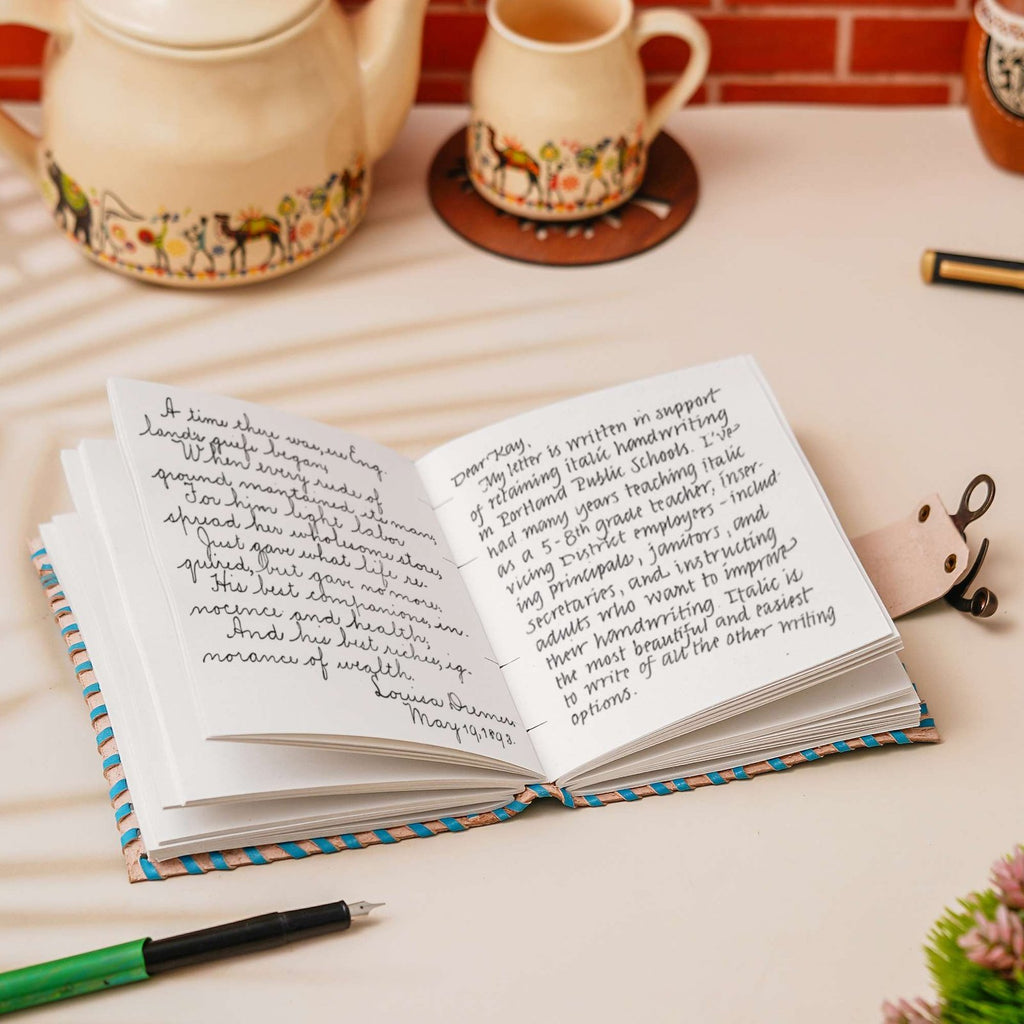 A time there was, ere Eng.
land's griefs began,
When every rood of
ground maintained its man,
For him light labor
spread her wholesome store,
Just gave what life re-
quired, but gave no more.
His best companions, in-
nocence and health;
And his best riches, ig-
norance of wealth.
Louisa
May 19, 1893.
Dear Kay,
My letter is written in support
of retaining italic handwriting
in Portland Public Schools. I've
had many years teaching italic
as a 5-8th grade teacher, inser-
vicing District employers – includ-
ing principals, janitors, and
secretaries, and instructing
adults who want to improve
their handwriting. Italic is
the most beautiful and easiest
to write of all the other writing
options.